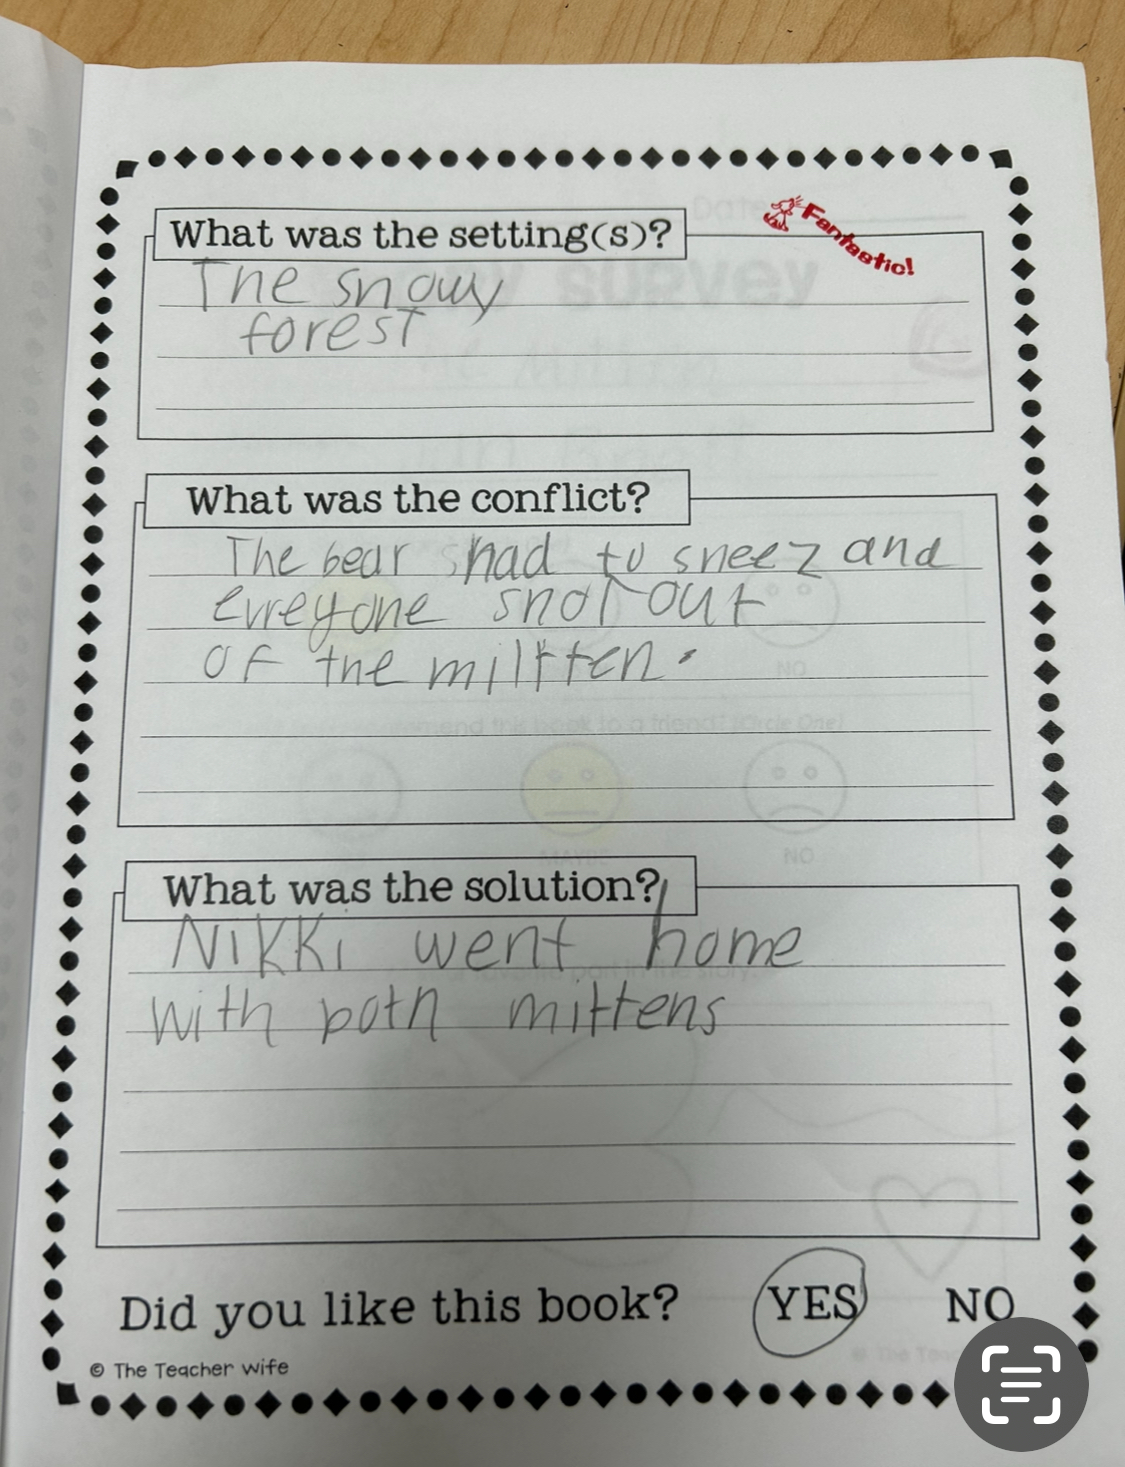 What was the setting(s)?
Fantastic!
The snowy
forest
What was the conflict?
The bear had to sneez and
evreyone shot out
of the miltten.
What was the solution?
Nikki went home
with both mittens
Did you like this book? YES NO
© The Teacher Wife